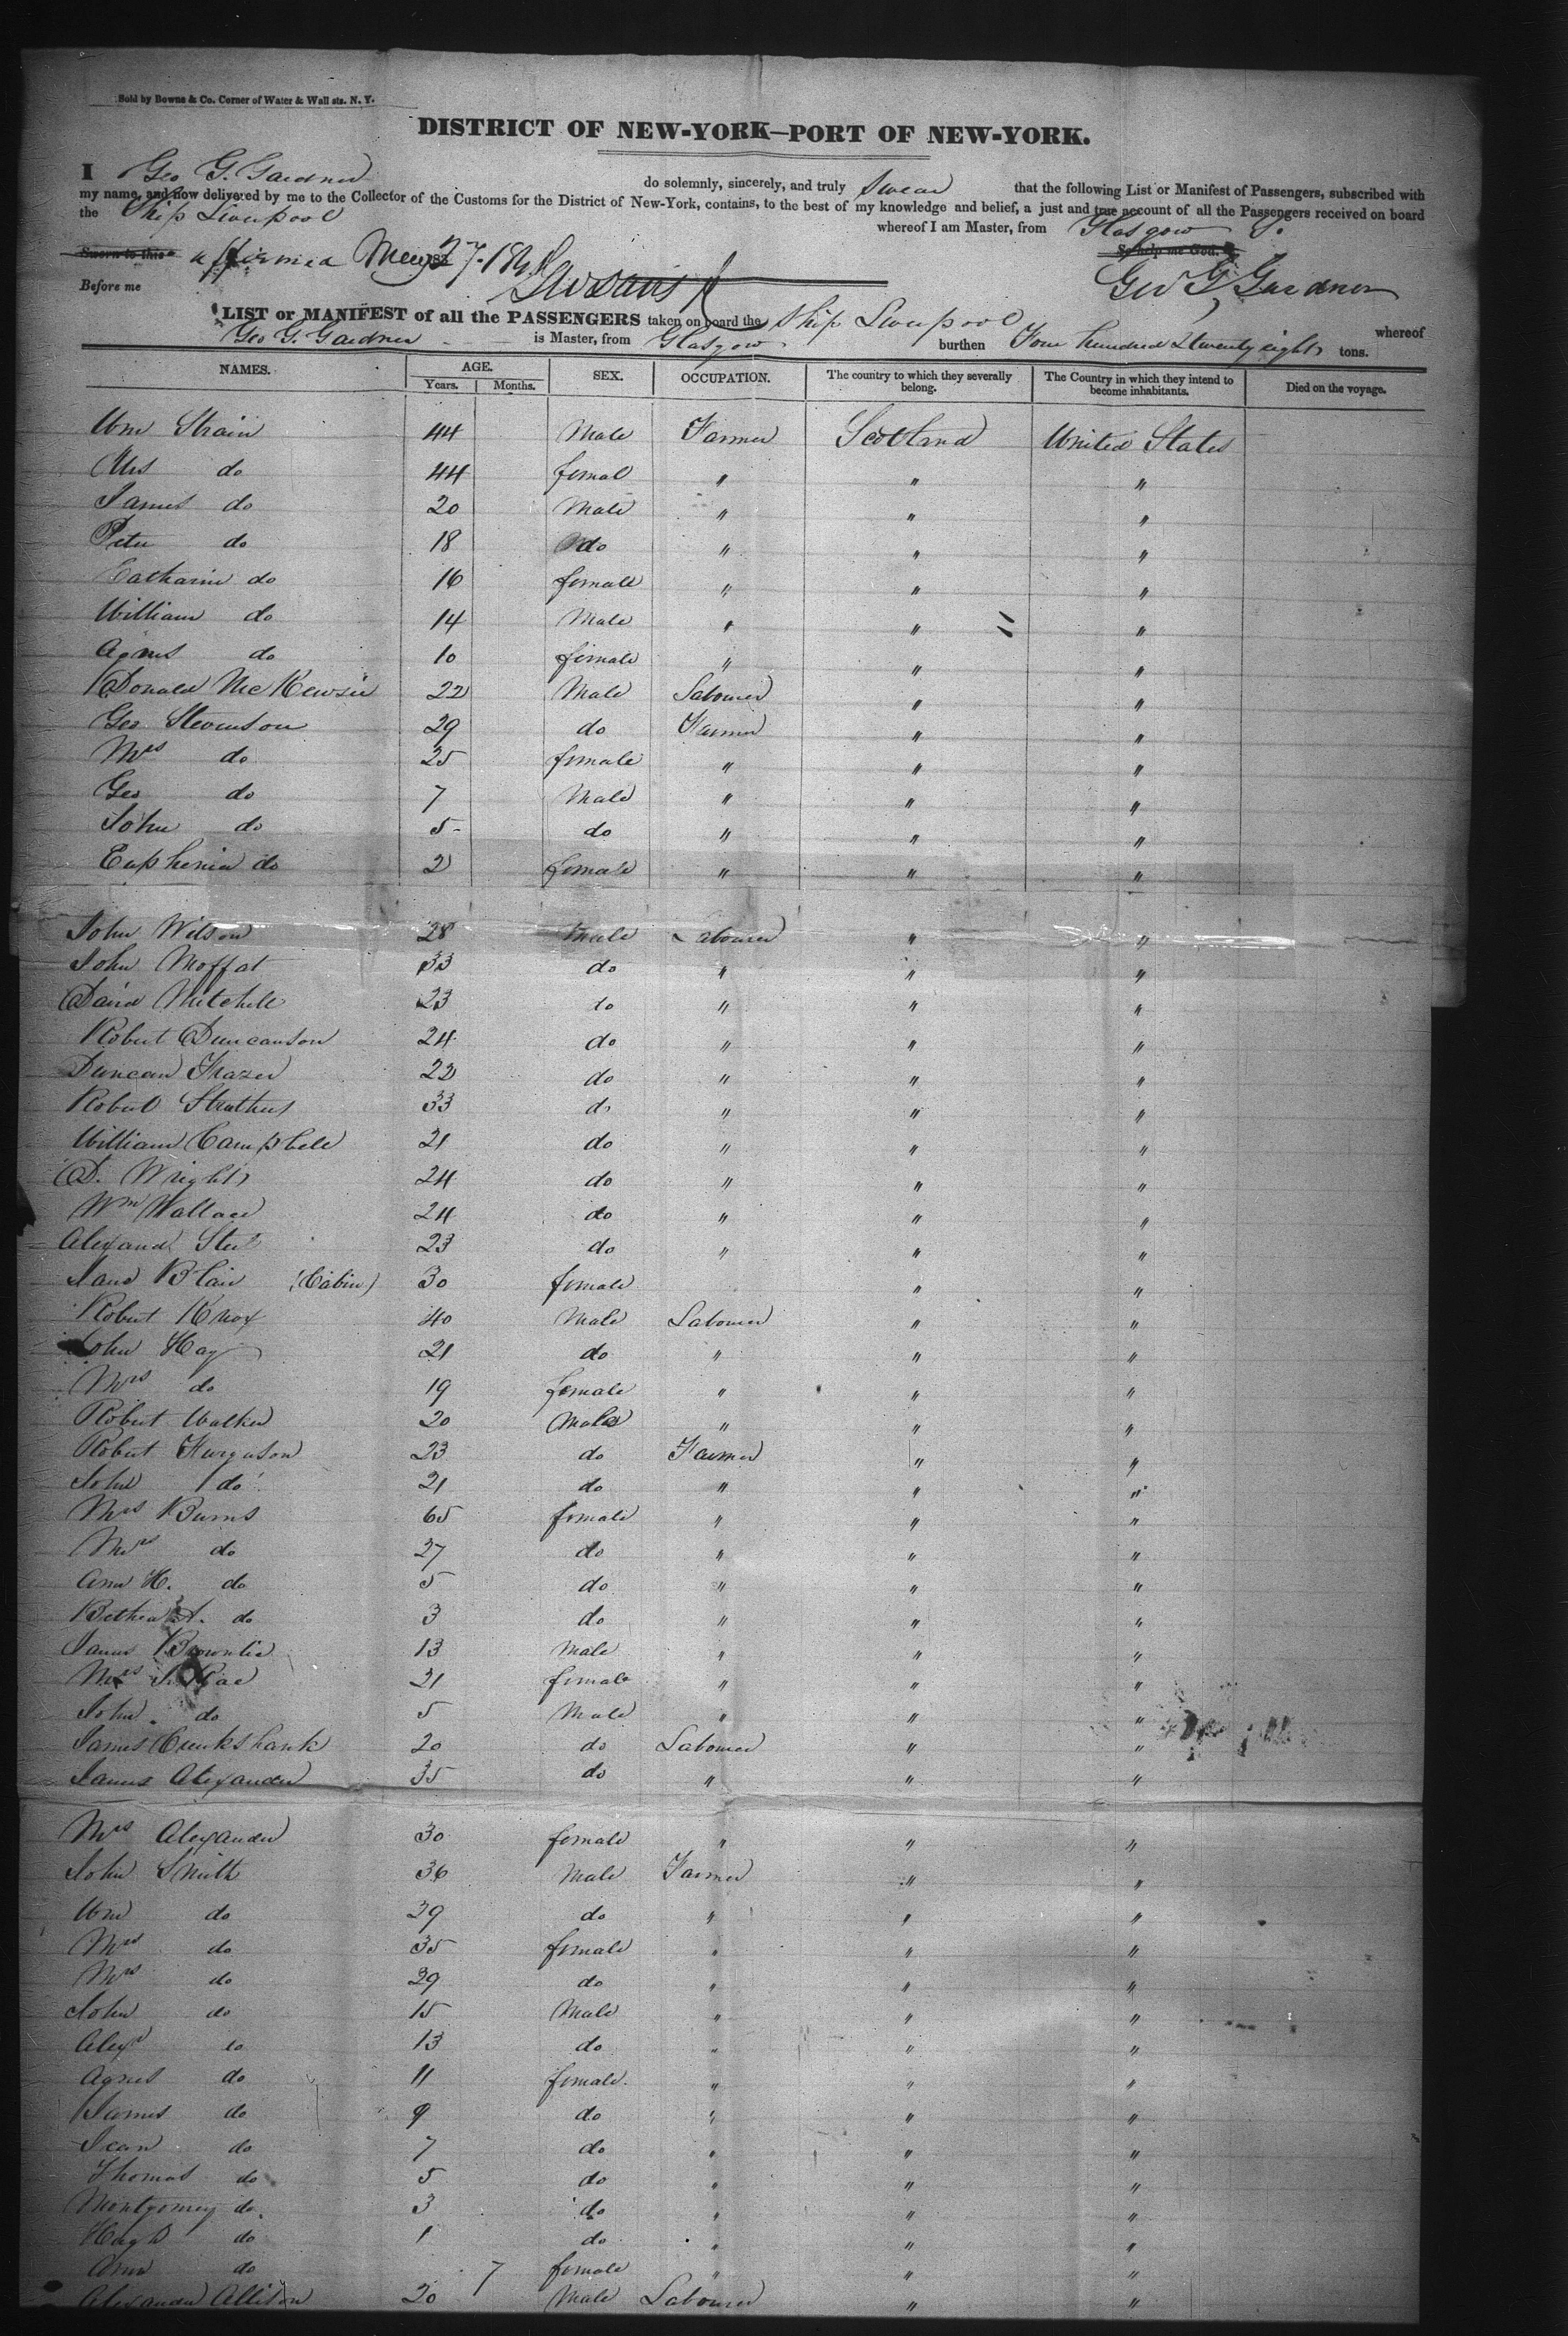 Sold by Bowne & Co. Corner of Water & Wall sts. N. Y.
DISTRICT OF NEW-YORK—PORT OF NEW-YORK.
I Geo G. Gardner do solemnly, sincerely, and truly Swear that the following List or Manifest of Passengers, subscribed with
my name, and now delivered by me to the Collector of the Customs for the District of New-York, contains, to the best of my knowledge and belief, a just and true account of all the Passengers received on board
the Ship Liverpool whereof I am Master, from Glasgow
Sworn to this affirmed May 27. So help me God.
Before me Geo G Gardner
LIST or MANIFEST of all the PASSENGERS taken on board the Ship Liverpool whereof
Geo G. Gardner is Master, from Glasgow burthen Four hundred & twenty eight tons.
NAMES. AGE. SEX. OCCUPATION. The country to which they severally belong. The Country in which they intend to become inhabitants. Died on the voyage.
Years. Months.
Wm Strain 44 Male Farmer Scotland United States
Mrs do 44 femal " " "
James do 20 Male " " "
Peter do 18 do " " "
Catharine do 16 female " " "
William do 14 Male " " "
Agnes do 10 female " " "
Donald McKewzie 22 Male Labourer " "
Geo Stevenson 29 do Farmer " "
Mrs do 25 female " " "
Geo do 7 Male " " "
John do 5 do " " "
Euphenia do 2 female " " "
John Wilson 28 Male Labourer " "
John Moffat 33 do " " "
David Mitchell 23 do " " "
Robert Duncanson 24 do " " "
Duncan Frazer 22 do " " "
Robert Struthers 33 do " " "
William Campbell 21 do " " "
D. Wright 24 do " " "
Wm Wallace 24 do " " "
Alexand Steel 23 do " " "
Jane Blair (Cabin) 30 female " "
Robert Knox 40 Male Labourer " "
John Hay 21 do " " "
Mrs do 19 female " " "
Robert Walker 20 Male " " "
Robert Furguson 23 do Farmer " "
John do 21 do " " "
Mrs Burns 65 female " " "
Mrs do 27 do " " "
Ann H. do 5 do " " "
Bethea A. do 3 do " " "
James Brownlie 13 Male " " "
Mrs J. Rae 21 female " " "
John do 5 Male " " "
James Cruikshank 20 do Labourer " "
James Alexander 35 do " " "
Mrs Alexander 30 female " " "
John Smith 36 Male Farmer " "
Wm do 29 do " " "
Mrs do 35 female " " "
Mrs do 29 do " " "
John do 15 Male " " "
Alexr do 13 do " " "
Agnes do 11 female " " "
James do 9 do " " "
Jean do 7 do " " "
Thomas do 5 do " " "
Montgomery do 3 do " " "
Hugh do 1 do " " "
Ann do 7 female " " "
Alexander Allison 20 Male Labourer " "